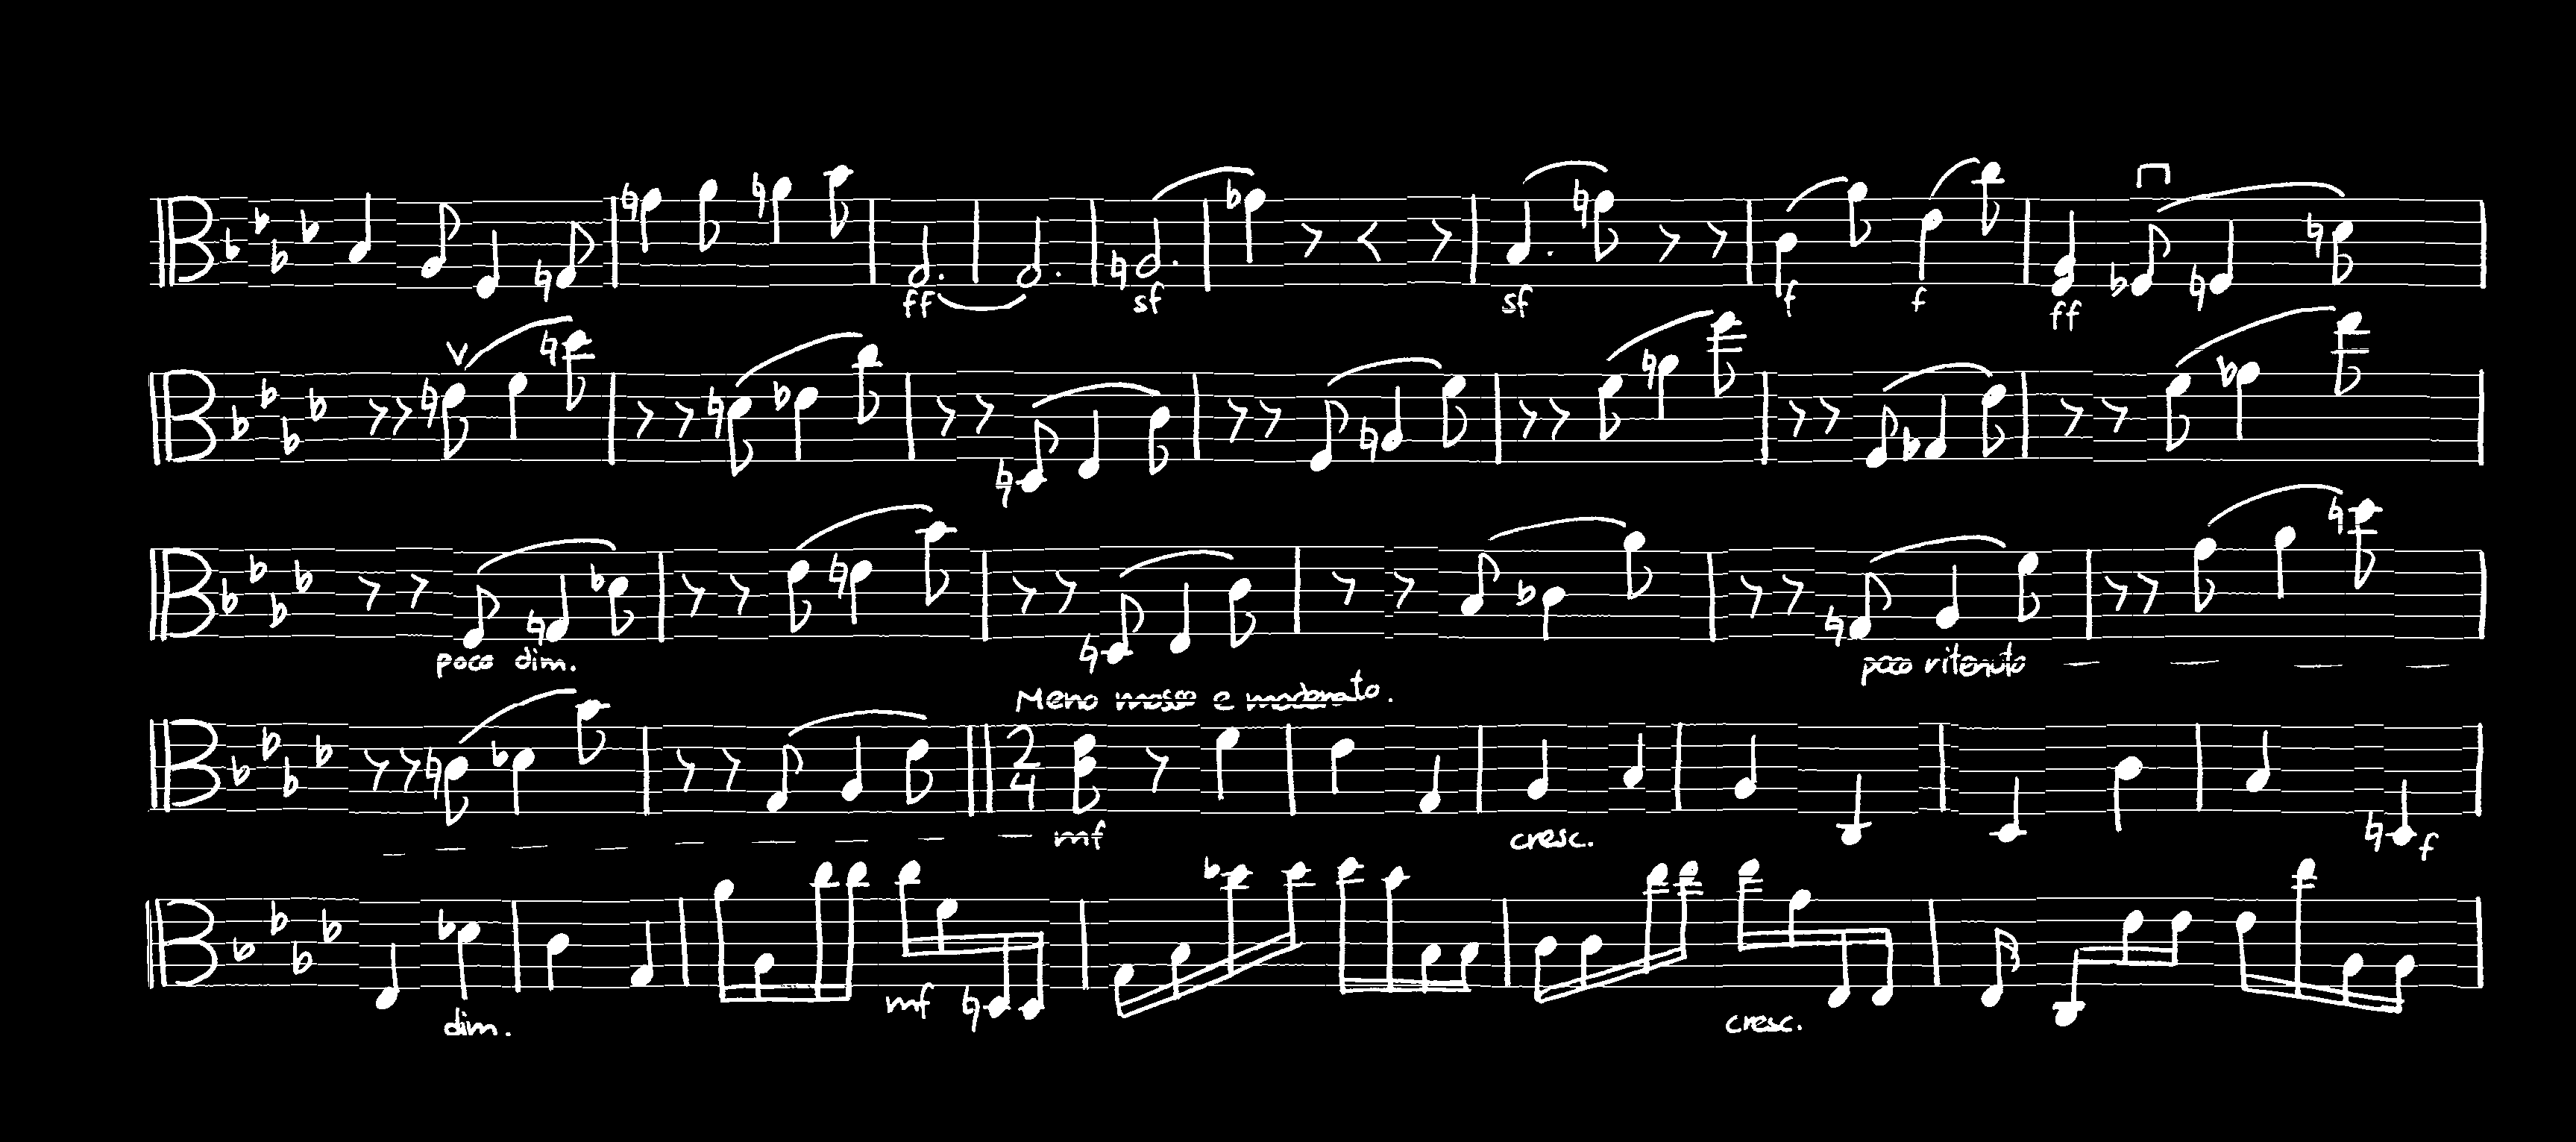 ff sf sf f f ff
poco dim. poco ritenuto
Meno mosso e moderato.
2
4
mf cresc. f
dim. mf cresc.